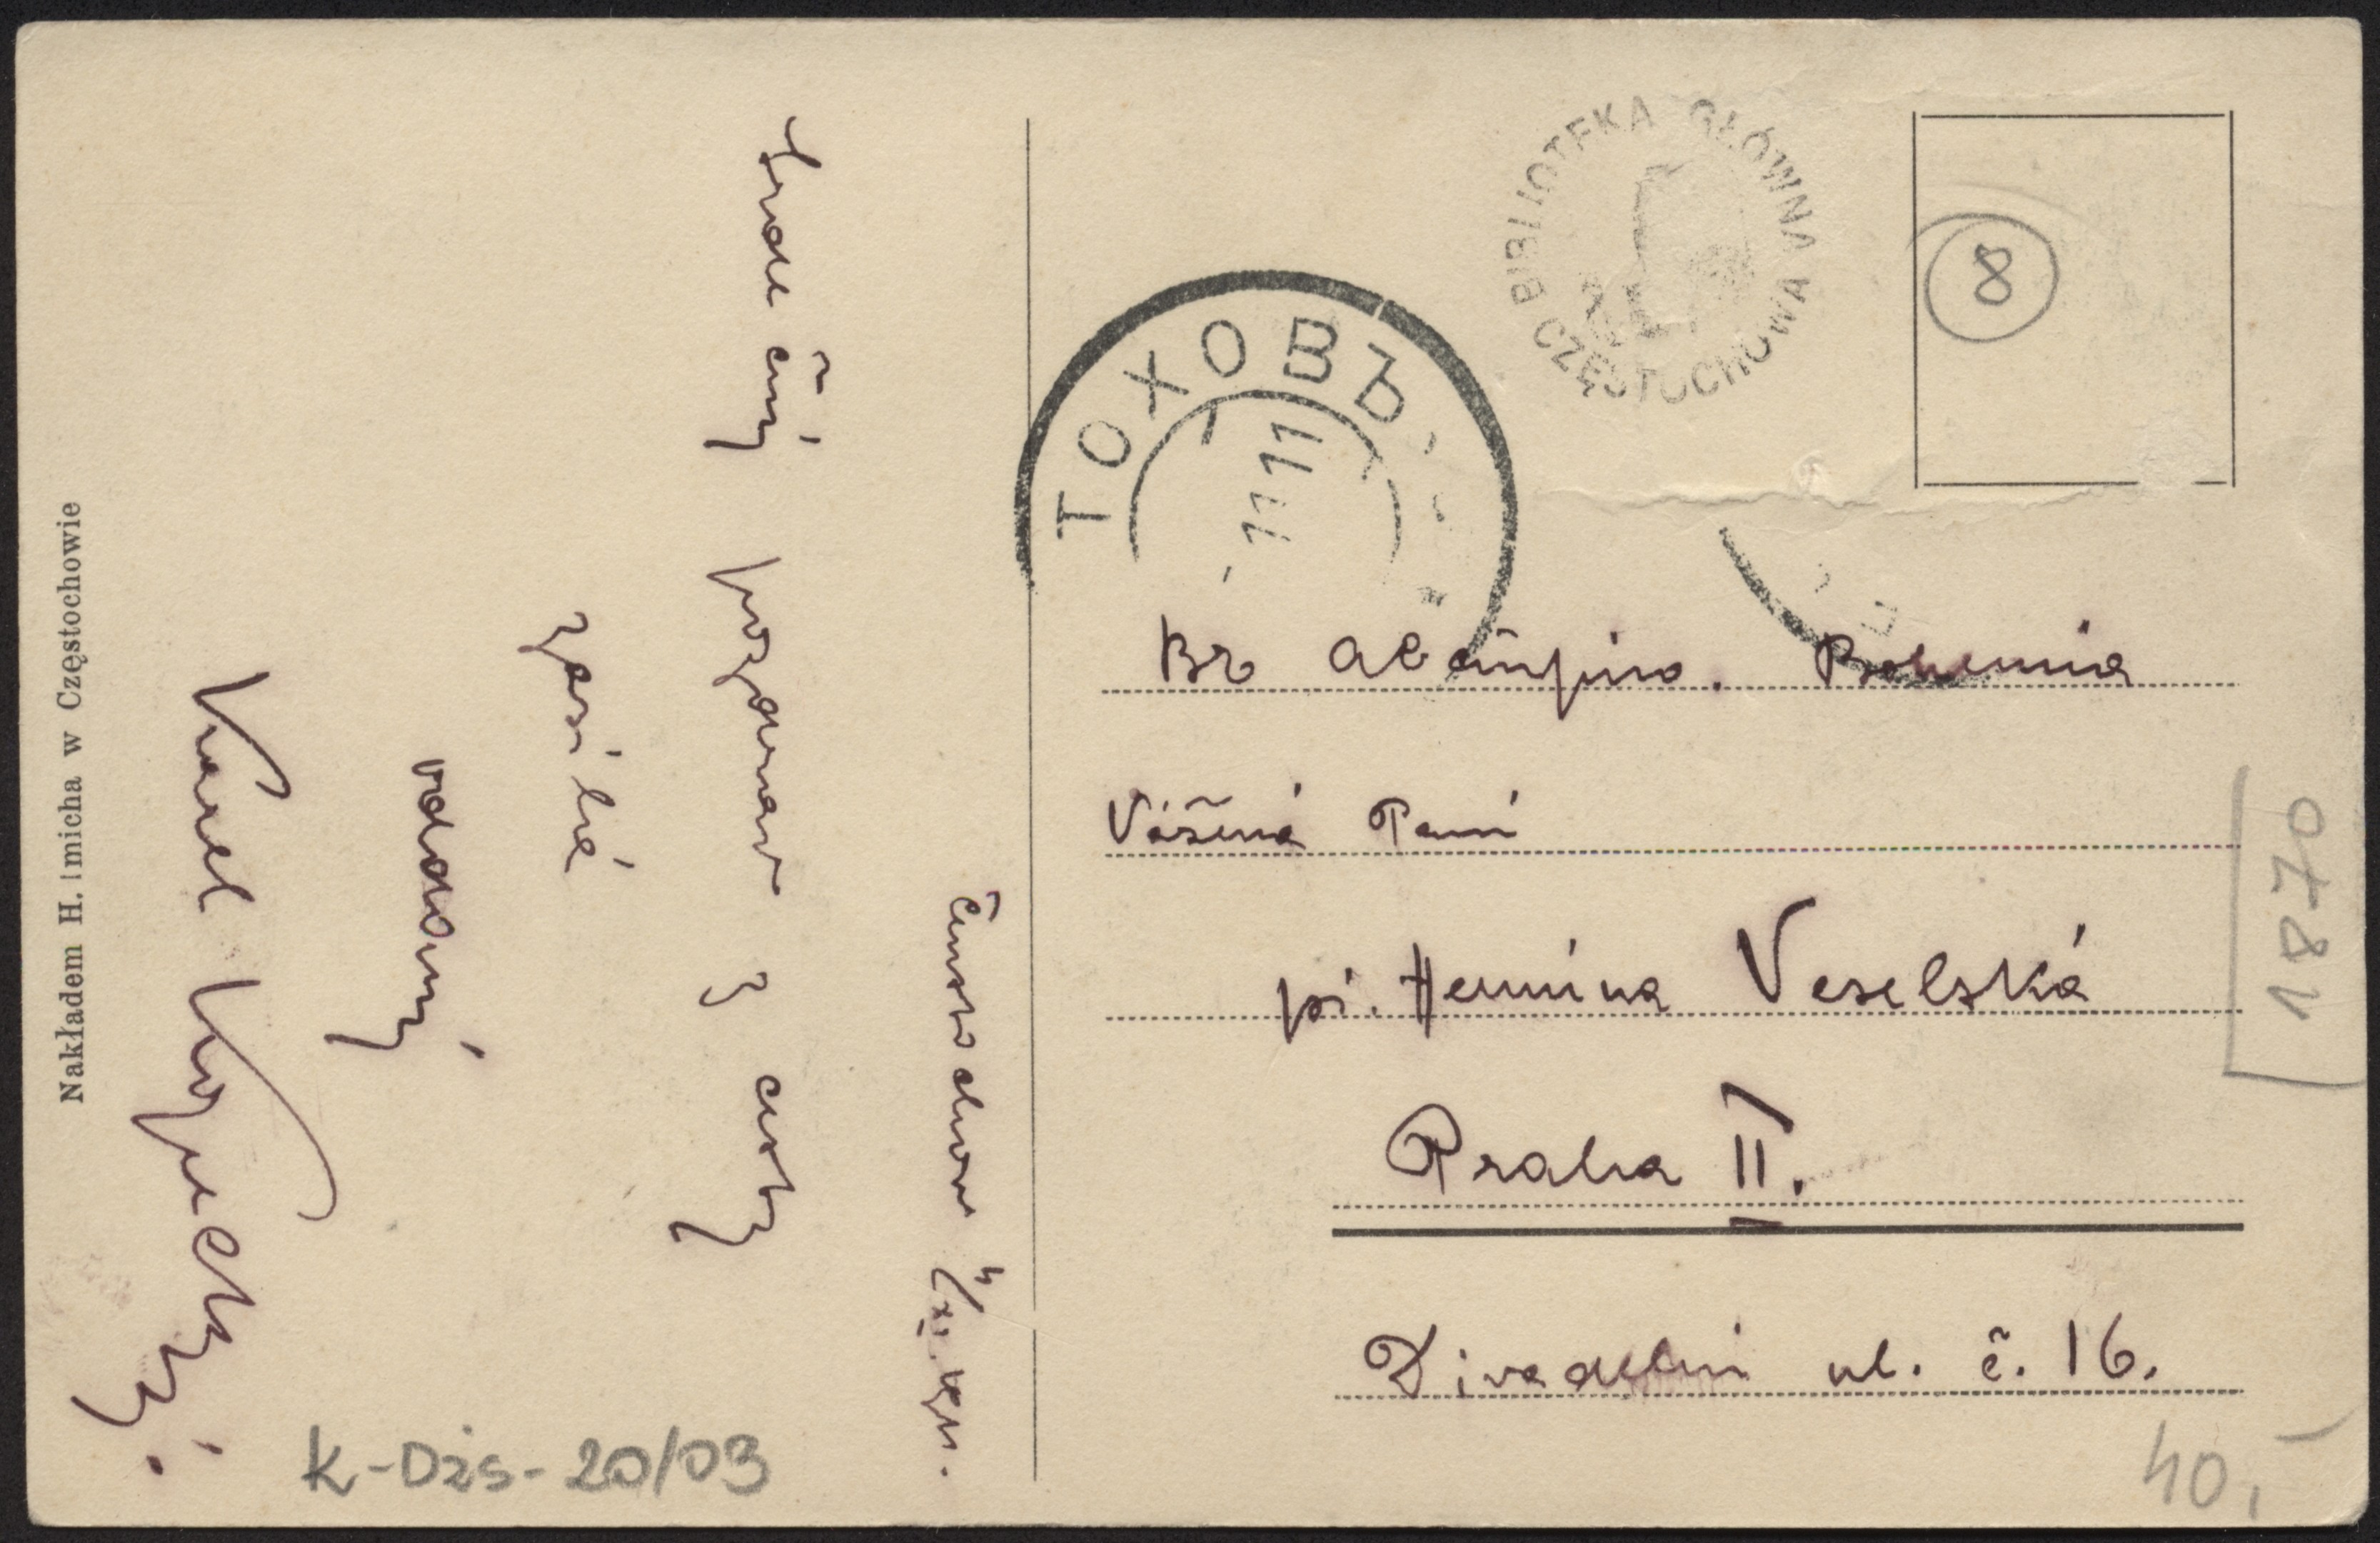 Nakładem H. Imicha w Częstochowie
Čenstochow 4/XI.
Srdečný pozdrav z cesty
zasílá
oddaný
Karel Kopecký.
K-Dżs-20/03
ТОХОВЪ
11 11
BIBLIOTEKA GŁÓWNA
CZĘSTOCHOWA
8
Въ Австрію. Bohemia
Vážená Paní
pí. Hermína Veselská
Praha II.
Divadelní ul. č. 16.
1870
40,-